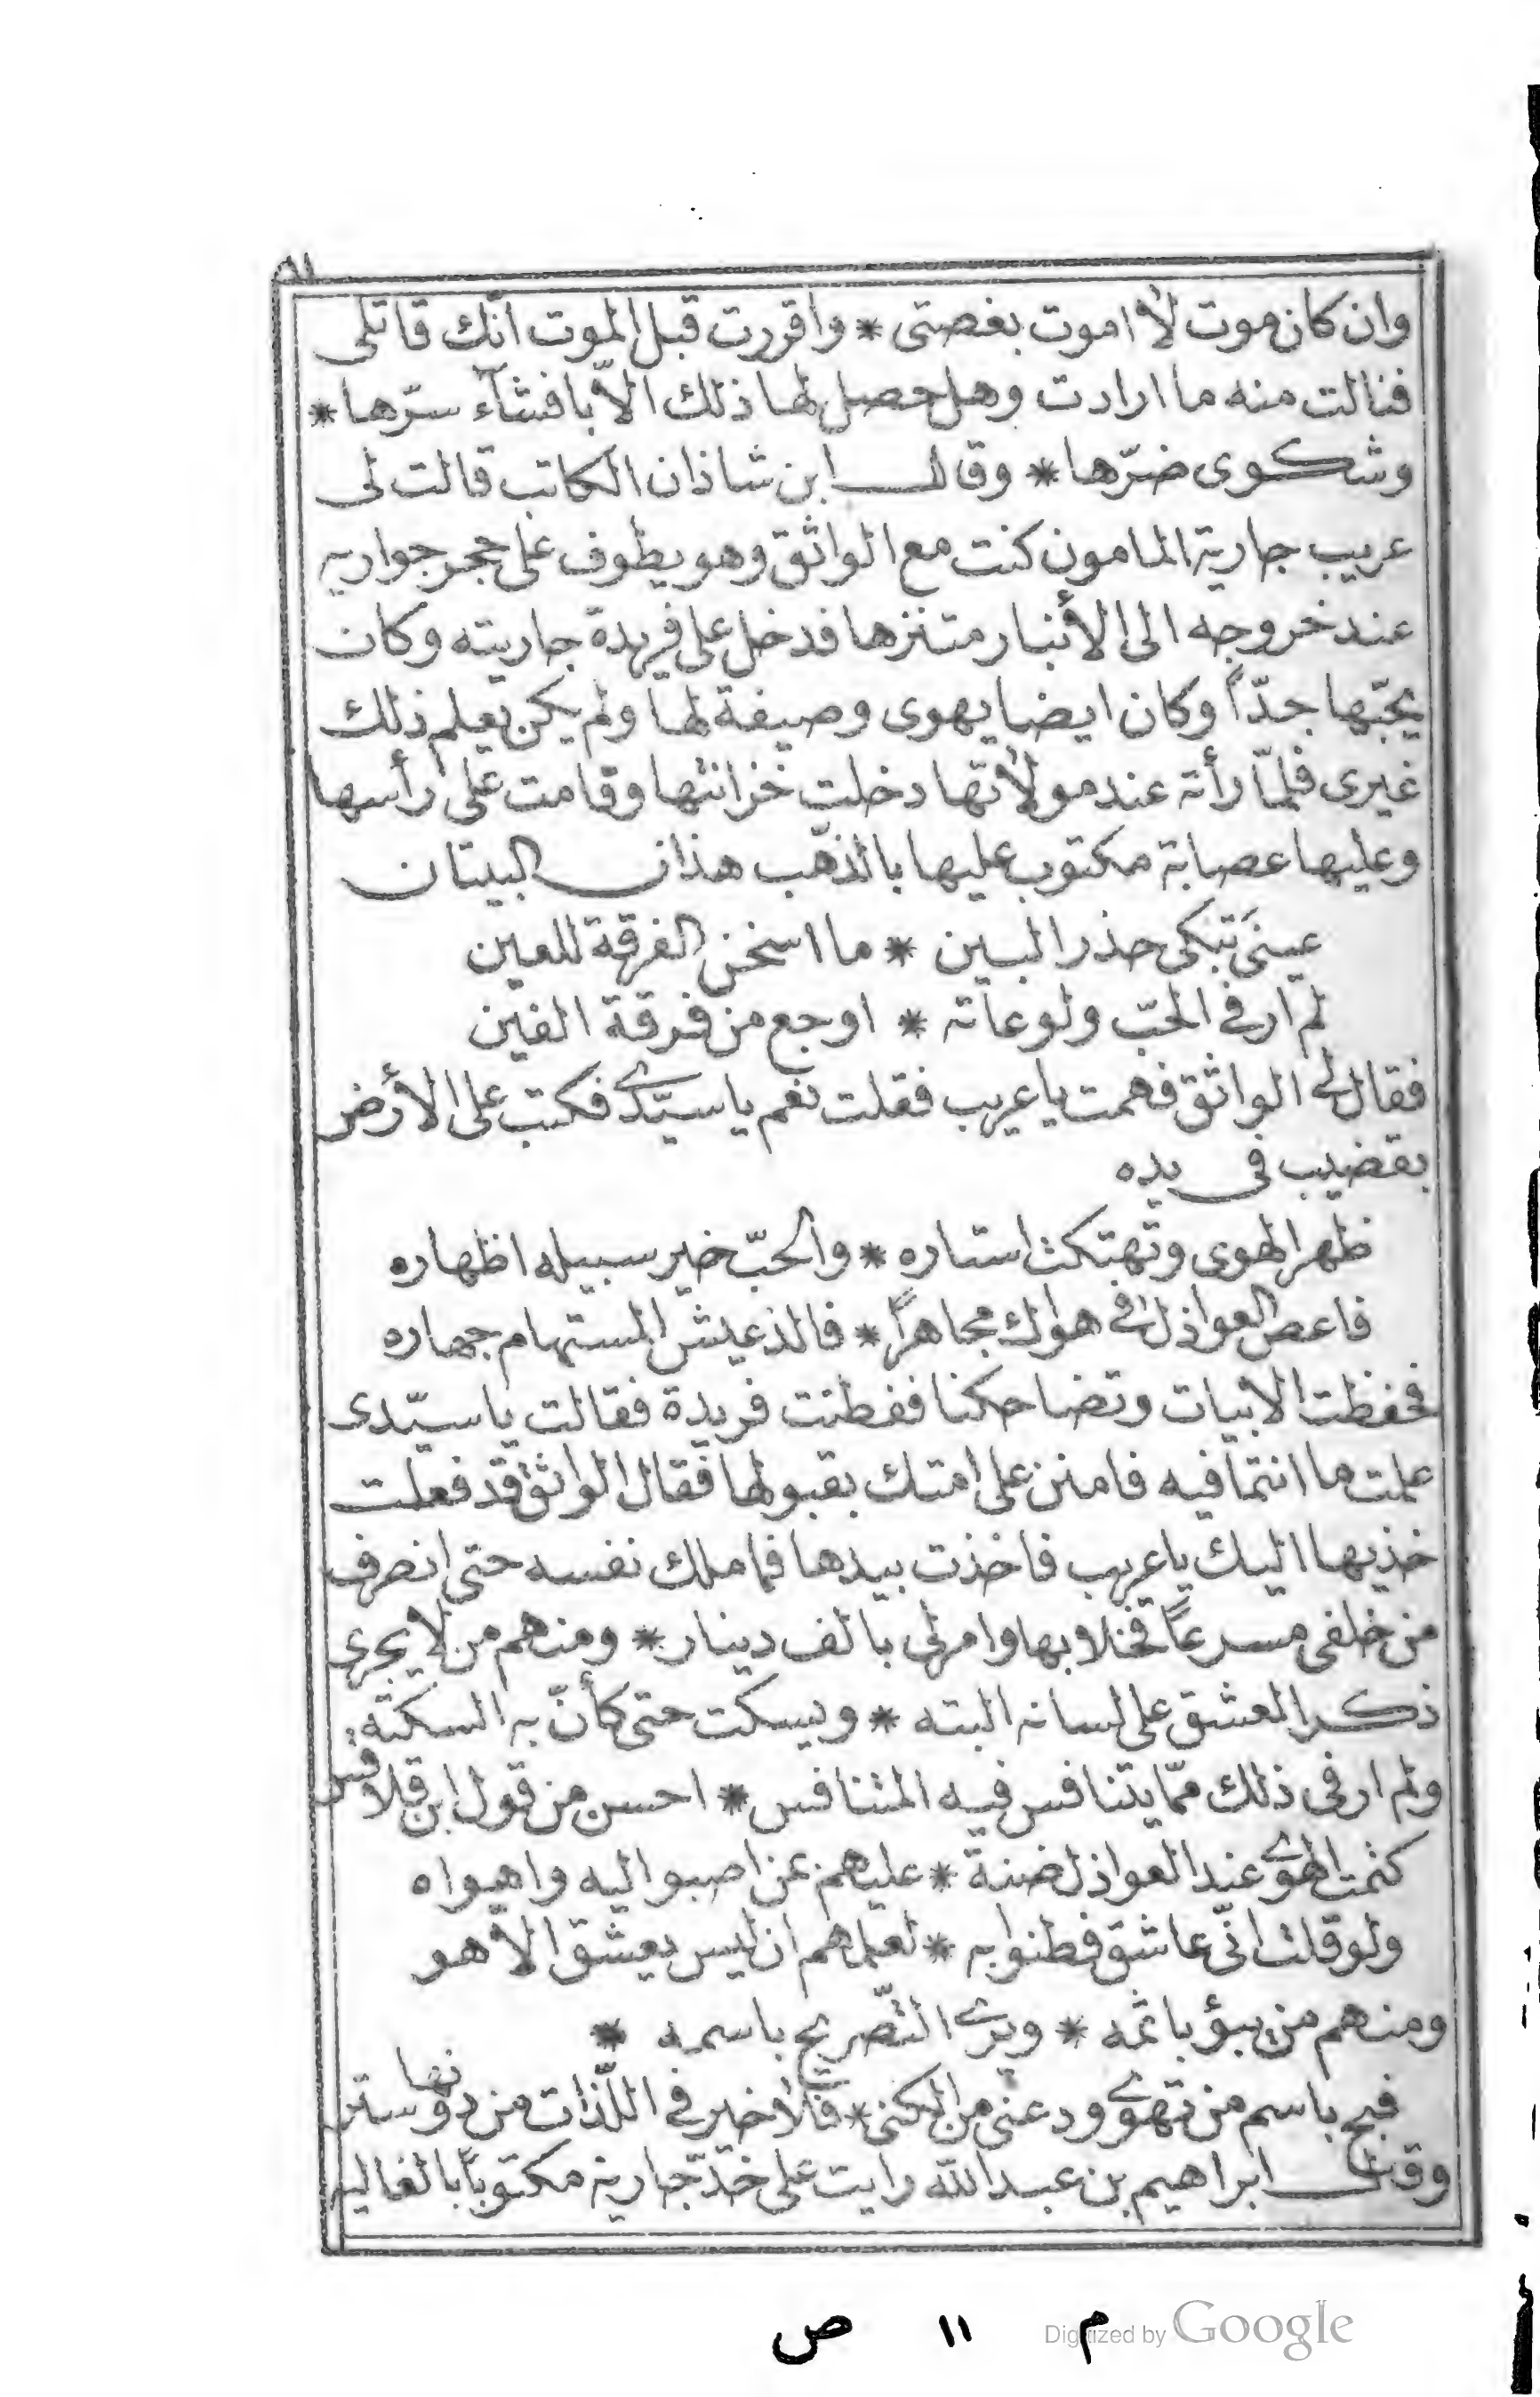 ٨١
وان كان موت لا اموت بغصتى * واقررت قبل الموت انّك قاتلى
فنالت منه ما ارادت وهل حصل لها ذلك الّا بافشآء سرّها *
وشكوى ضرّها * وقال ابن شاذان الكاتب قالت لى
عريب جارية المامون كنت مع الواثق وهو يطوف على حجر جواريه
عند خروجه الى الأنبار متنزها فدخل على فريدة جاريته وكان
يحبّها جدّاً وكان ايضا يهوى وصيفة لها ولم يكن يعلم ذلك
غيرى فلمّا رأته عند مولاتها دخلت خزانتها وقامت على رأسها
وعليها عصابة مكتوب عليها بالذهب هذان البيتان
عينى تبكى حذر البين * ما اسخن الفرقة للعين
لم ار فى الحبّ ولوعاته * اوجع من فرقة الفين
فقال لى الواثق فهمت يا عريب فقلت نعم يا سيّدى فكتب على الأرض
بقضيب فى يده
ظهر الهوى وتهتكت استاره * والحبّ خير سبيله اظهاره
فاعص العواذل فى هواك مجاهراً * فالذ عيش المستهام جهاره
فحفظت الابيات وتضاحكنا ففطنت فريدة فقالت يا سيّدى
علمت ما انتما فيه فامنن على امتك بقبولها فقال الواثق قد فعلت
خذيها اليك يا عريب فاخذت بيدها فما ملك نفسه حتى انصرف
من خلفى مسرعاً فخلا بها وامر لى بالف دينار * ومنهم من لا يجرى
ذكر العشق على لسانه البته * ويسكت حتى كأنّ به السكتة
ولم ار فى ذلك ممّا يتنافس فيه المتنافس * احسن من قول ابن قلاقس
كتمت الهوى عند العواذل ضنة * عليهم بمن اصبو اليه واهواه
ولو قلت انّى عاشق فطنوا به * لعلمهم ان ليس يعشق الّا هو
ومنهم من يبؤ باثمه * ويرى التّصريح باسمه *
فبح باسم من تهوى ودعنى من الكنى * فلا خير فى اللّذات من دونها ستر
وقال ابراهيم بن عبد الله رايت على خدّ جارية مكتوباً بالغالية
م ١١ ص
Digitized by Google